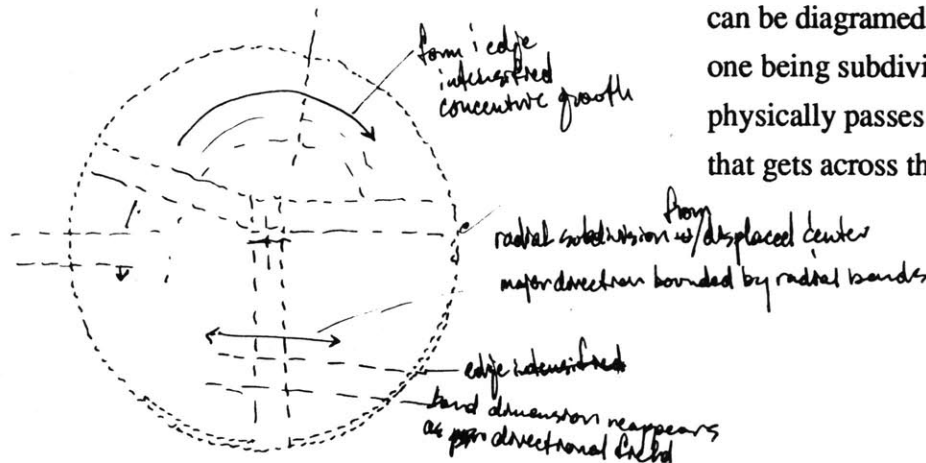 can be diagramed
one being subdivi
physically passes
that gets across th
form i edge
intensified
concentric growth
from
radial subdivision w/ displaced center
major direction bounded by radial bands
edge intensified
band dimension reappears
as directional field